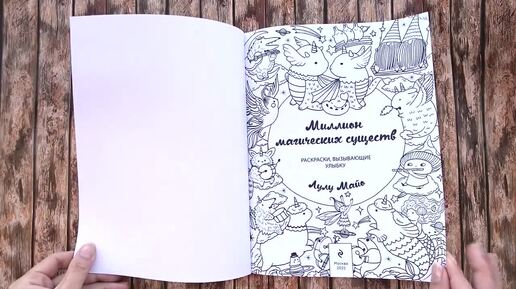 Миллион
магических существ
РАСКРАСКИ, ВЫЗЫВАЮЩИЕ
УЛЫБКУ
Лулу Майо
Москва